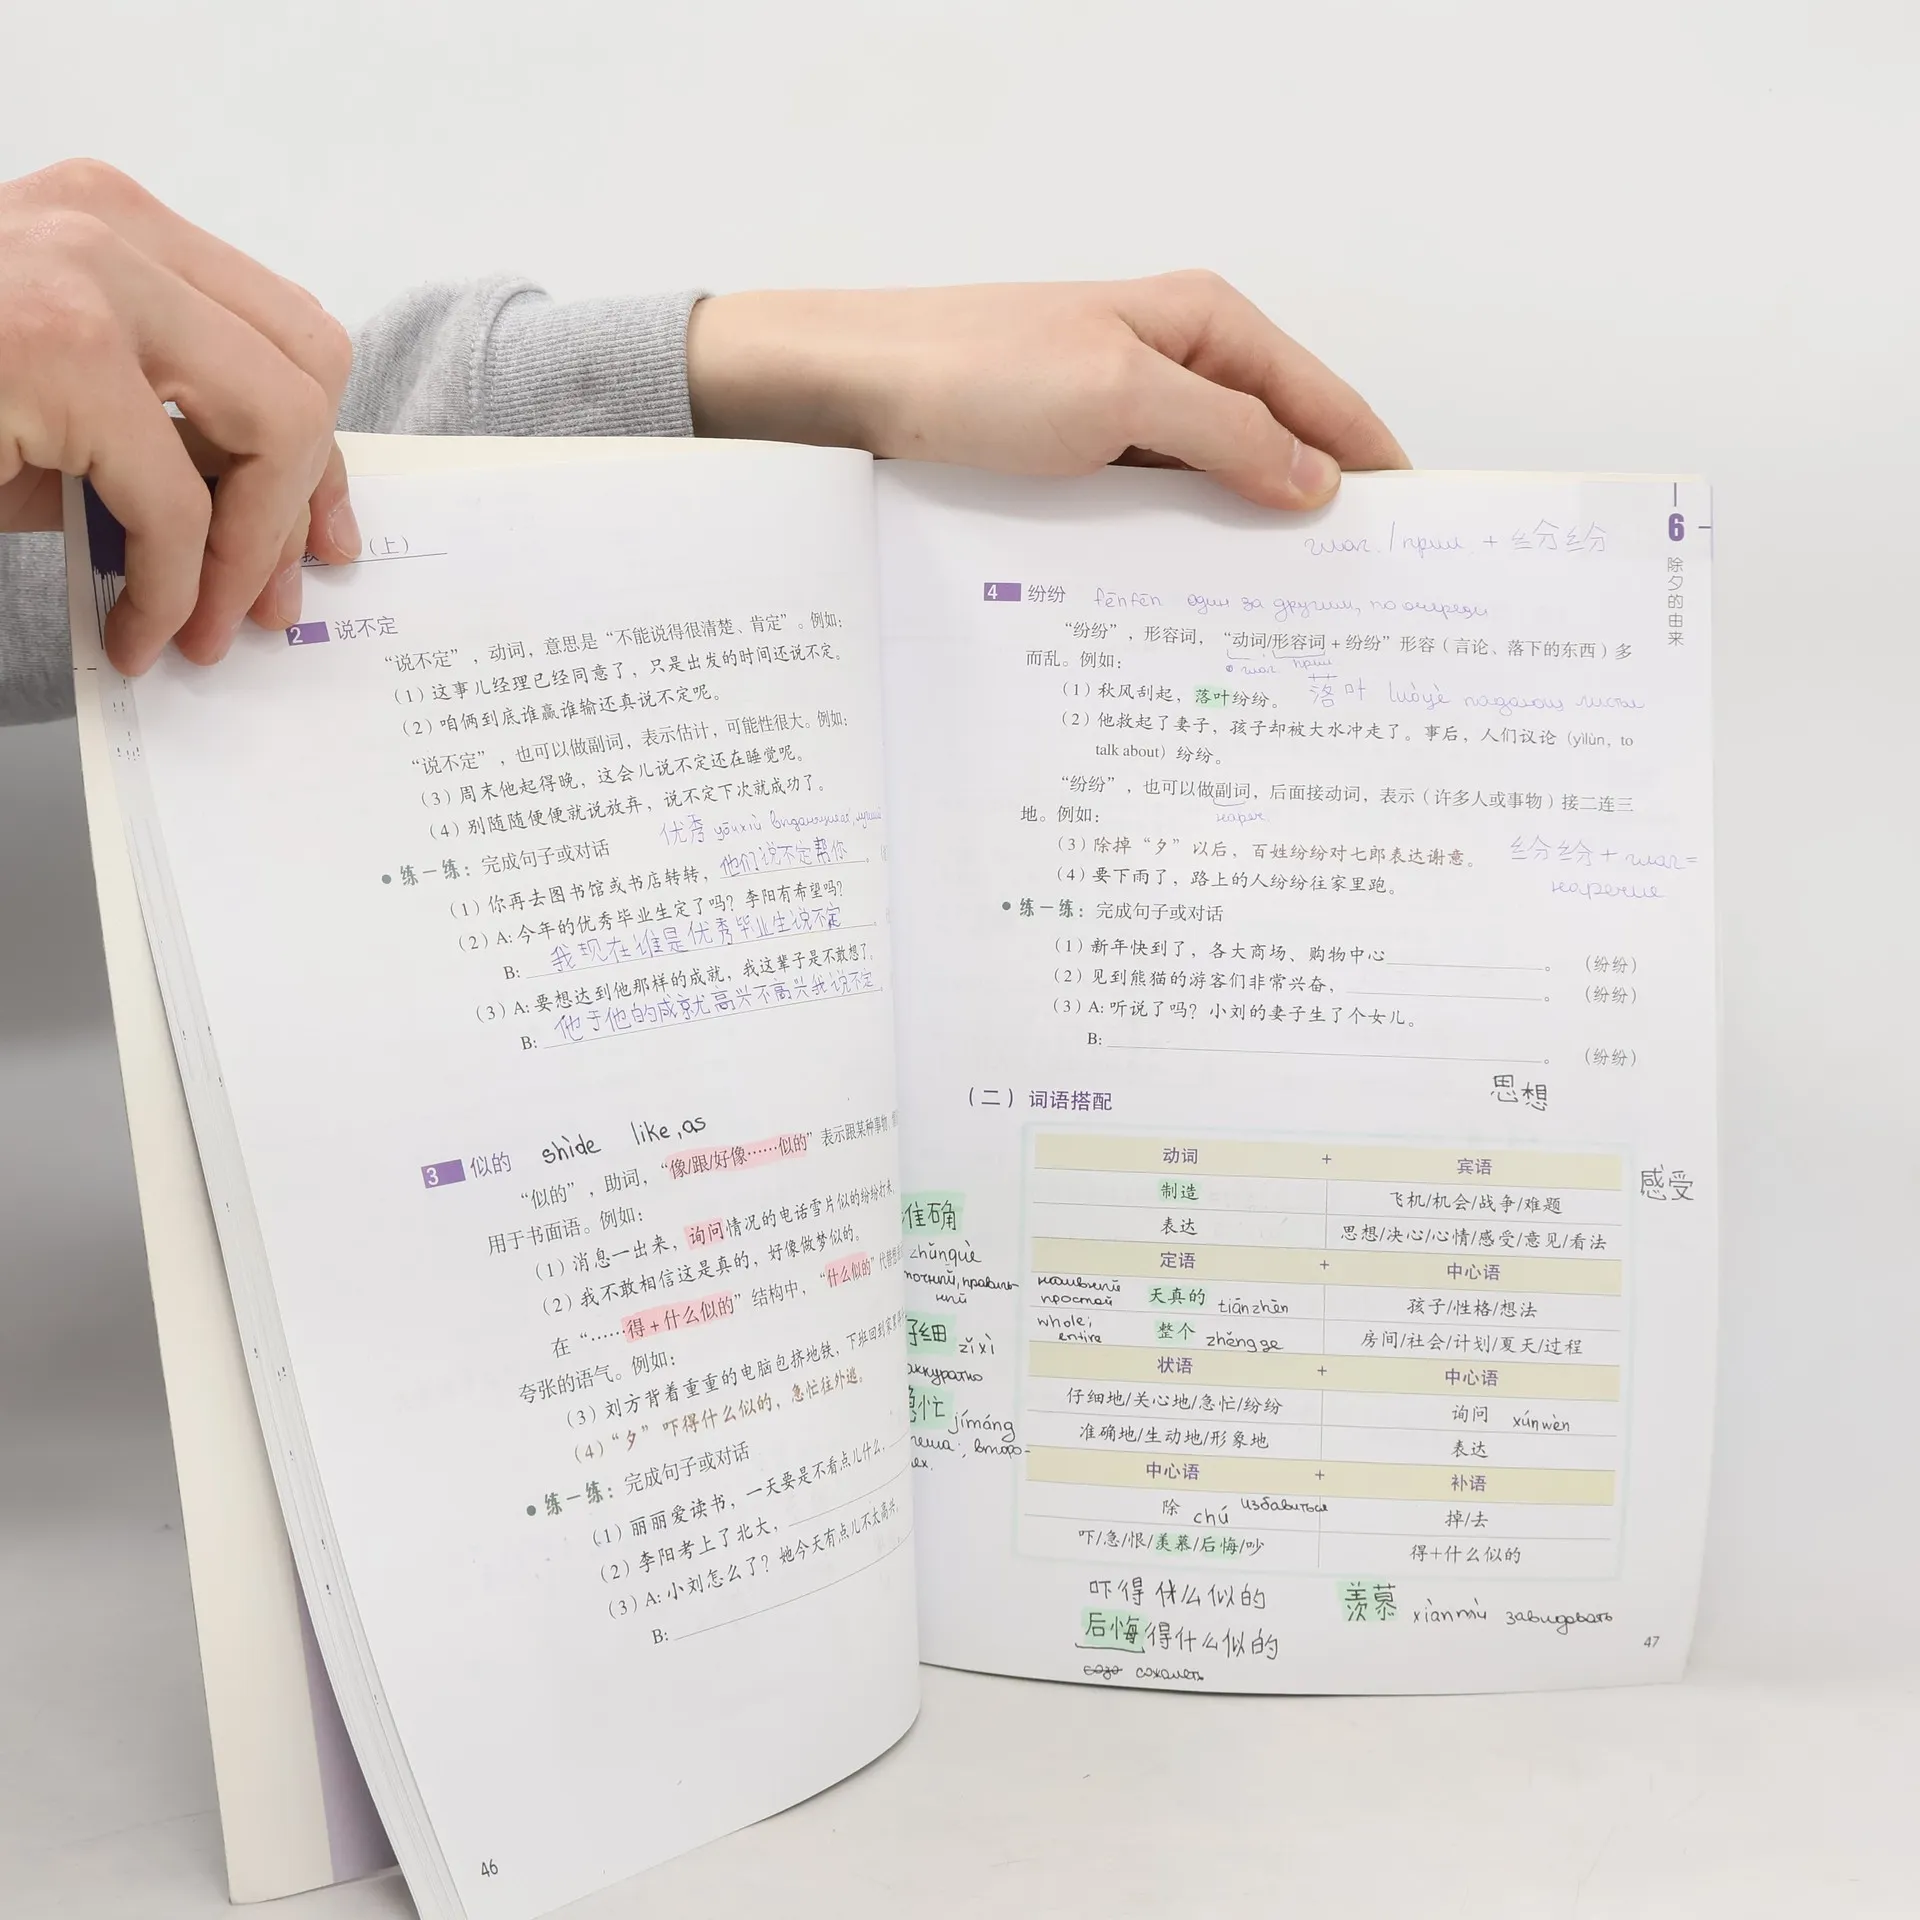 （上）
2 说不定
“说不定”，动词，意思是“不能说得很清楚、肯定”。例如：
（1）这事儿经理已经同意了，只是出发的时间还说不定。
（2）咱俩到底谁赢谁输还真说不定呢。
“说不定”，也可以做副词，表示估计，可能性很大。例如：
（3）周末他起得晚，这会儿说不定还在睡觉呢。
（4）别随随便便就说放弃，说不定下次就成功了。
优秀 yōuxiù
● 练一练：完成句子或对话
（1）你再去图书馆或书店转转，他们说不定帮你。
（2）A: 今年的优秀毕业生定了吗？李阳有希望吗？
B: 我现在谁是优秀毕业生说不定。
（3）A: 要想达到他那样的成就，我这辈子是不敢想了。
B: 他于他的成就高兴不高兴我说不定
shìde like, as
3 似的
“似的”，助词，“像/跟/好像……似的”表示跟某种事物
用于书面语。例如：
（1）消息一出来，询问情况的电话雪片似的纷纷打来，
（2）我不敢相信这是真的，好像做梦似的。
在“……得+什么似的”结构中，“什么似的”代替
夸张的语气。例如：
（3）刘方背着重重的电脑包挤地铁，下班回到家
（4）“夕”吓得什么似的，急忙往外逃。
● 练一练：完成句子或对话
（1）丽丽爱读书，一天要是不看点儿什么，
（2）李阳考上了北大，
（3）A: 小刘怎么了？她今天有点儿不太高兴。
B:
46
6 除夕的由来
глаг. / прил. + 纷纷
4 纷纷 fēnfēn один за другим, по очереди
“纷纷”，形容词，“动词/形容词+纷纷”形容（言论、落下的东西）多
глаг прил
而乱。例如：
（1）秋风刮起，落叶纷纷。 落叶 luòyè падающ листья
（2）他救起了妻子，孩子却被大水冲走了。事后，人们议论（yìlùn, to
talk about）纷纷。
“纷纷”，也可以做副词，后面接动词，表示（许多人或事物）接二连三
нареч.
地。例如：
（3）除掉“夕”以后，百姓纷纷对七郎表达谢意。
纷纷 + глаг =
наречие
（4）要下雨了，路上的人纷纷往家里跑。
● 练一练：完成句子或对话
（1）新年快到了，各大商场、购物中心 。（纷纷）
（2）见到熊猫的游客们非常兴奋， 。（纷纷）
（3）A: 听说了吗？小刘的妻子生了个女儿。
B: 。（纷纷）
思想
（二）词语搭配
动词 + 宾语
制造 飞机/机会/战争/难题
感受
表达 思想/决心/心情/感受/意见/看法
定语 + 中心语
наивный простой 天真的 tiānzhēn 孩子/性格/想法
whole; entire 整个 zhěngge 房间/社会/计划/夏天/过程
状语 + 中心语
仔细地/关心地/急忙/纷纷 询问 xúnwèn
准确地/生动地/形象地 表达
中心语 + 补语
除 chú избавиться 掉/去
吓/急/恨/羡慕/后悔/吵 得+什么似的
准确
zhǔnquè
точный, правиль-
ный
仔细 zǐxì
аккуратно
急忙 jímáng
吓得什么似的
后悔得什么似的
сожалеть
羡慕 xiànmù завидовать
47